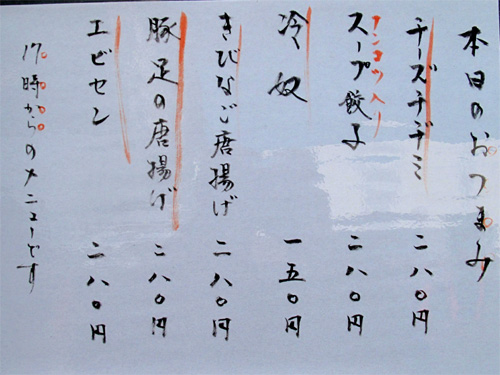 本日のおつまみ
チーズチヂミ 二八〇円
ナンコツ入り
スープ餃子 二八〇円
冷奴 一五〇円
きびなご唐揚げ 二八〇円
豚足の唐揚げ 二八〇円
エビセン 二八〇円
17時からのメニューです